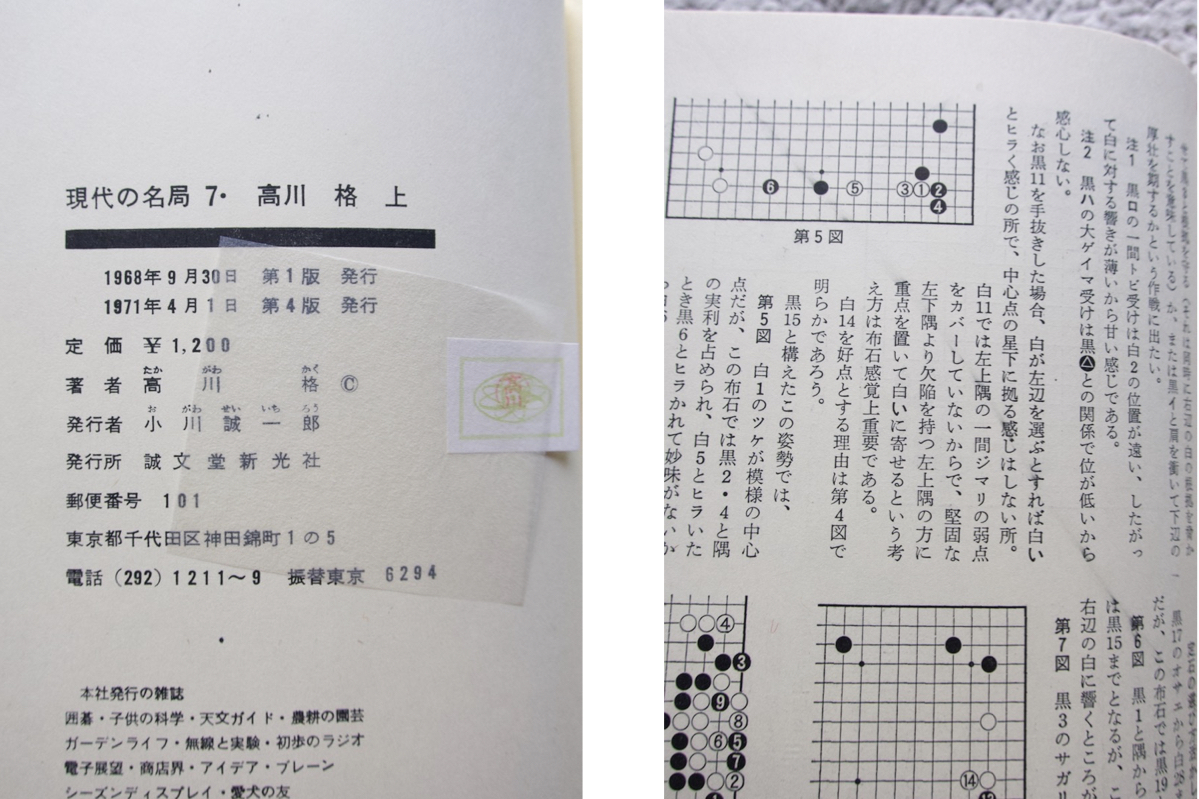 現代の名局 7・ 高川 格 上
1968年9月30日 第1版 発行
1971年4月1日 第4版 発行
定 価 ¥1,200
たか がわ かく
著 者 高 川 格 ©
お がわ せい いち ろう
発行者 小川誠一郎
発行所 誠文堂新光社
郵便番号 101
東京都千代田区神田錦町1の5
電話(292)1211〜9 振替東京 6294
本社発行の雑誌
囲碁・子供の科学・天文ガイド・農耕の園芸
ガーデンライフ・無線と実験・初歩のラジオ
電子展望・商店界・アイデア・ブレーン
シーズンディスプレイ・愛犬の友
厚壮を期するかという作戦に出たい。
注1 黒ロの一間トビ受けは白2の位置が遠い、したがっ
て白に対する響きが薄いから甘い感じである。
注2 黒ハの大ゲイマ受けは黒▲との関係で位が低いから
感心しない。
なお黒11を手抜きした場合、白が左辺を選ぶとすれば白い
とヒラく感じの所で、中心点の星下に拠る感じはしない所。
6 5 3 1 2 4
第5図
白11では左上隅の一間ジマリの弱点
をカバーしていないからで、堅固な
左下隅より欠陥を持つ左上隅の方に
重点を置いて白いに寄せるという考
え方は布石感覚上重要である。
白14を好点とする理由は第4図で
明らかであろう。
黒15と構えたこの姿勢では、
第5図 白1のツケが模様の中心
点だが、この布石では黒2・4と隅
の実利を占められ、白5とヒラいた
とき黒6とヒラかれて妙味がないか
黒17のオサエから白18
だが、この布石では黒19
第6図 黒1と隅から
は黒15までとなるが、こ
右辺の白に響くところが
第7図 黒3のサガリ
4
3
9
8
6 5
7
2
14